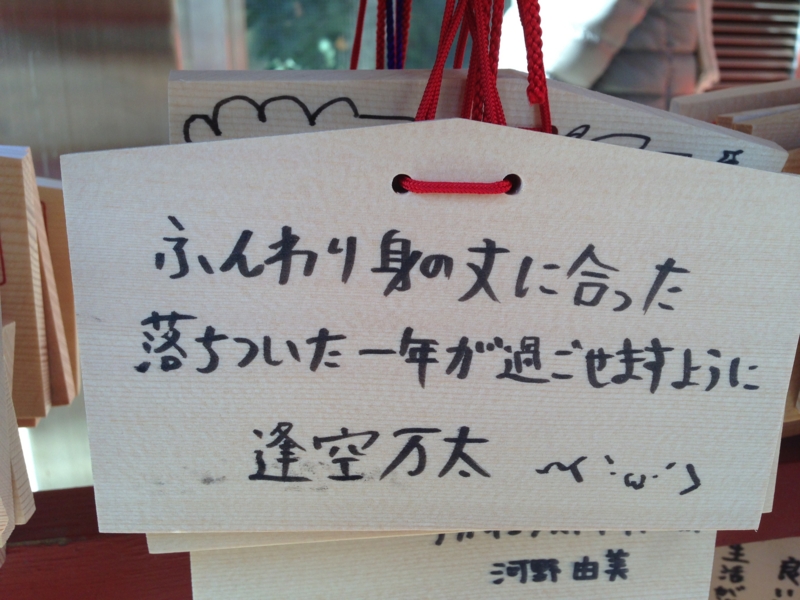 ふんわり身の丈に合った
落ちついた一年が過ごせますように
逢空万太 ～(´･ω･`)
河野由美
生活が
良い